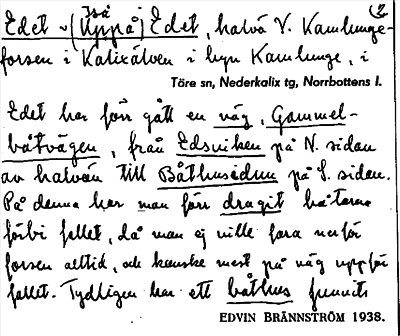 (2
Edet ~ ( ⁱˢᵃ Uppå) Edet, halvö V. Kamlunge-
forsen i Kalixälven i byn Kamlunge, i
Töre sn, Nederkalix tg, Norrbottens l.
Edet har förr gått en väg, Gammel-
båtvägen, från Edsviken på N. sidan
av halvön till Båthusidun på S. sidan.
På denna har man förr dragit båtarna
förbi fallet, då man ej ville fara nerför
forsen alltid, och kanske mest på väg uppför
fallet. Tydligen har ett båthus funnits
EDVIN BRÄNNSTRÖM 1938.